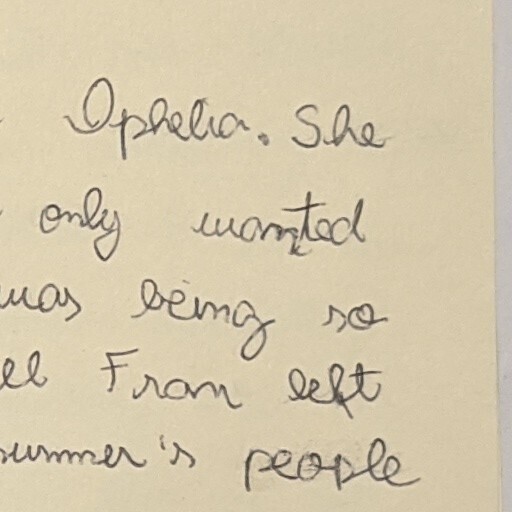 Ophelia. She
only wanted
was being so
Fran left
summer's people